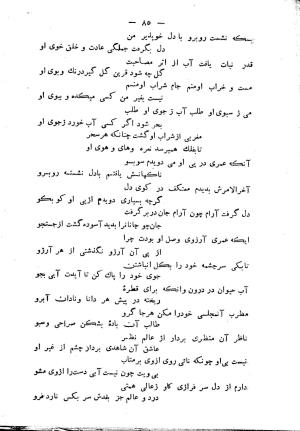 — ۸۵ —
بسکه نشست روبرو با دل خوپذیر من
دل بگرفت جملگی عادت و خلق خوی او
قدر نبات یافت آب از اثر مصاحبت
گل چو شود قرین گل گیرد رنگ و بوی او
مست و خراب اومنم جام شراب اومنم
نیست بغیر من کسی میکده و سبوی او
چند ز سوی او طلب آب ز جوی او طلب
بحر شود اگر کسی آب خورد ز جوی او
مغربی از شراب او گشت چنانکه هر سحر
تا بفلک همیرسد نعره وهای و هوی او
آنکه عمری در پی او می دویدم سوبسو
ناگهانش یافتم بادل نشسته روبرو
آخرالامرش بدیدم معتکف در کوی دل
گرچه بسیاری دویدم ازپی او کو بکو
دل گرفت آرام چون آرام جان در بر گرفت
جان چو جانانرا بدید آسوده گشت از جستجو
ایکه عمری آرزوی وصل او بودت چرا
از پی آن آرزو نگذشتی از هر آرزو
تابکی سرچشمه خود را بگل انباشتن
جوی خود را پاك کن تا آیدت آبی بجو
آب حیوان در درون وانگه برای قطرهٔ
ریخته در پیش هر دانا و نادان آبرو
مطرب آنمجلسی خودرا مکن هرجا گرو
طالب آن بادهٔ بشکن صراحی وسبو
ناظر آن منظری بردار از عالم نظر
عاشق آن شاهدی بردار چشم از غیر او
نیست بی او چونکه تابی روی ازوی برمتاب
بی ویت چون نیست آبی دست ازوی مشو
دارم از دل سر فرازی کاو زعالی همتی
سر بکس نارد فرو